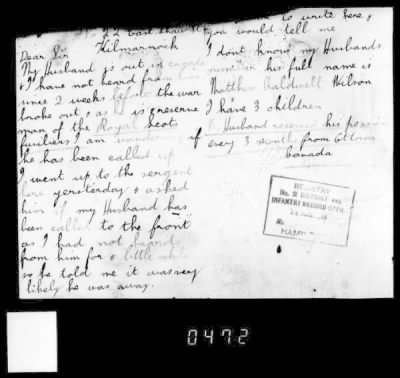 22 East Shaw St
Kilmarnock
Dear Sir
My Husband is out in canada
& I have not heard from him
since 2 weeks before the war
broke out & as he is reserve
man of the Royal Scots
fusiliers I am wondering if
he has been called up
I went up to the sergent
here yersterday & asked
him if my Husband has
been called to the front
as I had not heard
from him for a little while
so he told me it was very
likely he was away.
to write here &
you would tell me
I dont know my Husbands
number his full name is
Matthew Caldwell Wilson
I have 3 children
Husband receives his pension
every 3 months from Ottowa
Canada
REGISTRY
No. 2 DISTRICT AND
INFANTRY RECORD OFFICE
No
HAM
0472